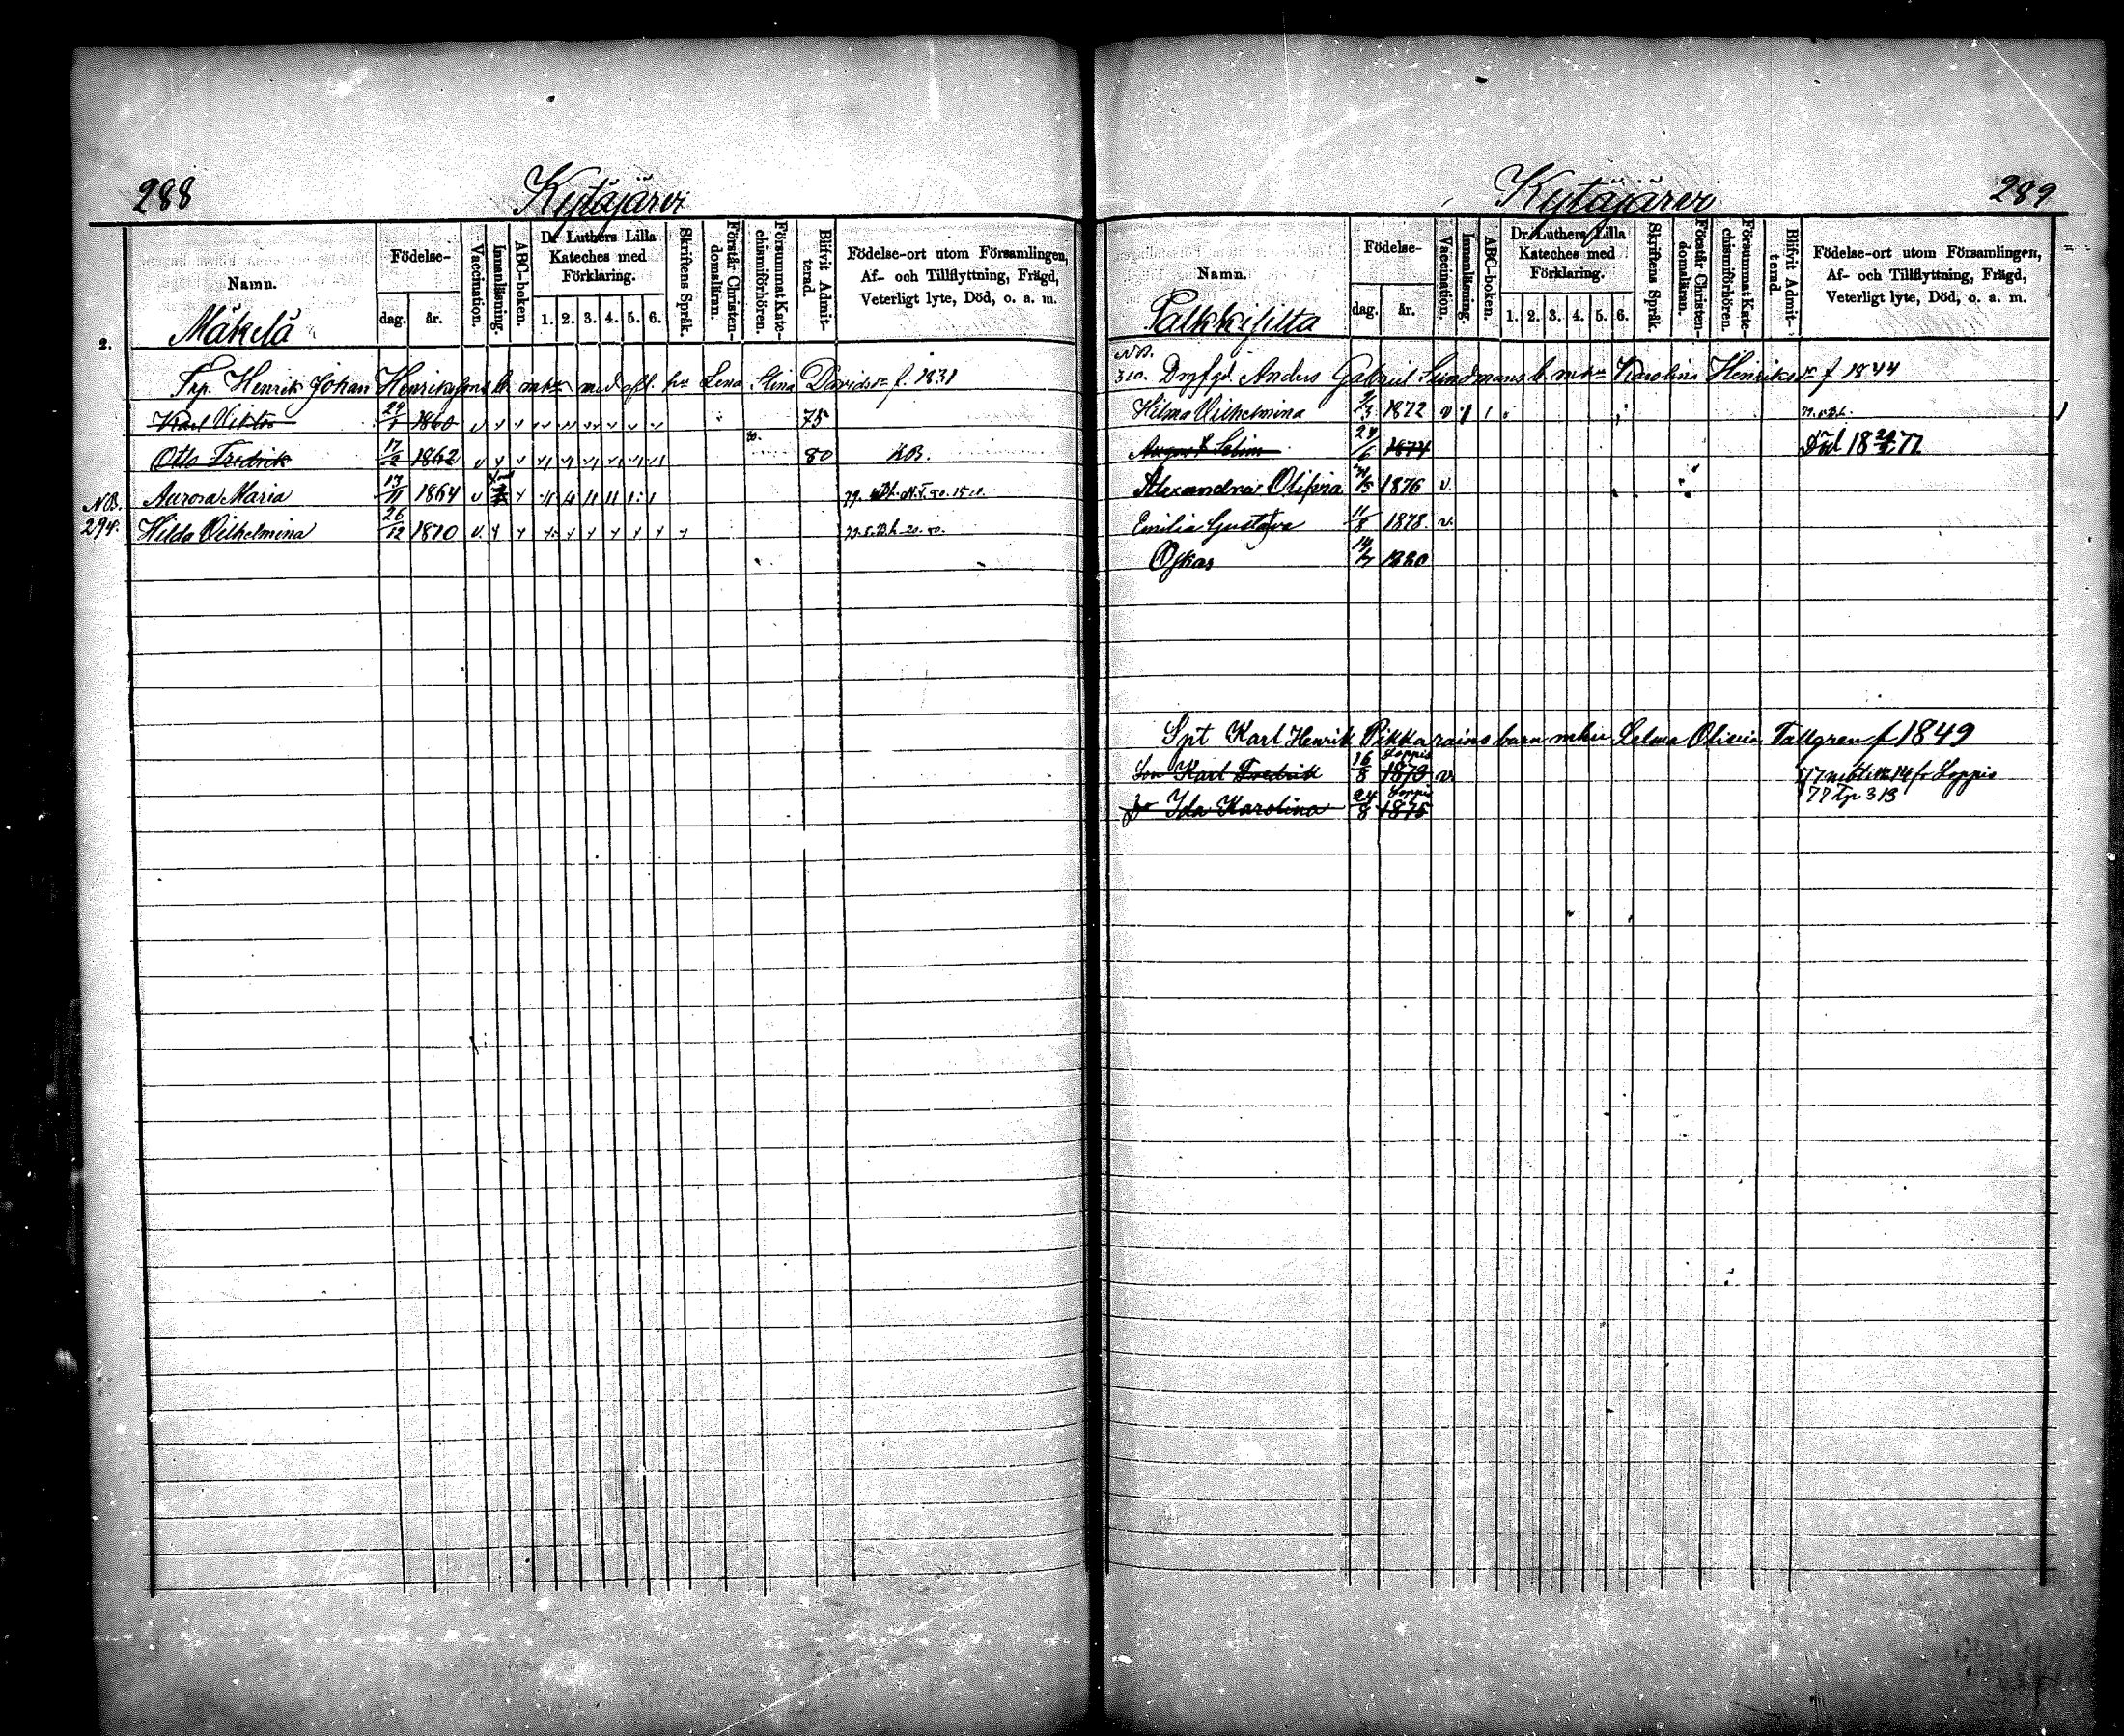 288 Kytäjärvi
Namn.
Födelse-
dag. år.
Vaccination.
Innanläsning.
ABC-boken.
Dr Luthers Lilla Kateches med Förklaring.
1. 2. 3. 4. 5. 6.
Skriftens Språk.
Förstår Christendomslärn.
Försummat Katechismiförhören.
Blifvit Admitterad.
Födelse-ort utom Församlingen,
Af- och Tillflyttning, Frägd,
Veterligt lyte, Död, o. a. m.
2. Mäkelä
Trp. Henrik Johan Henrikssons b. mhu med afl. hu Lena Stina Davidsdr f. 1831
Karl Viktor 1860 75
Otto Fredrik 17/2 1862 80
NB. Aurora Maria 13/11 1864
294. Hilda Vilhelmina 26/12 1870
Kytäjärvi 289
Namn.
Födelse-
dag. år.
Vaccination.
Innanläsning.
ABC-boken.
Dr. Luthers Lilla Kateches med Förklaring.
1. 2. 3. 4. 5. 6.
Skriftens Språk.
Förstår Christendomsläran.
Försummat Katechismiförhören.
Blifvit Admitterad.
Födelse-ort utom Församlingen,
Af- och Tillflyttning, Frägd,
Veterligt lyte, Död, o. a. m.
Palkkisilta
NB.
310. Anders Gabriel Sundmans b. mhu Karolina Henriksdr f 1844
Hilma Vilhelmina 1872 v
August Selim 24/6 1874 Död 18 77
Alexandra Olivia 1876 v.
Emilia Gustava 11/8 1878 v.
Oskar 14/7 1880
Spt Karl Henrik Pikkarains barn mhu Selma Olivia Tallgren f 1849
Son Karl Fredrik 16/8 Loppis 1873 v. 77 fr Loppis
Ida Karolina 24/8 Loppis 1875 77 Tp 313